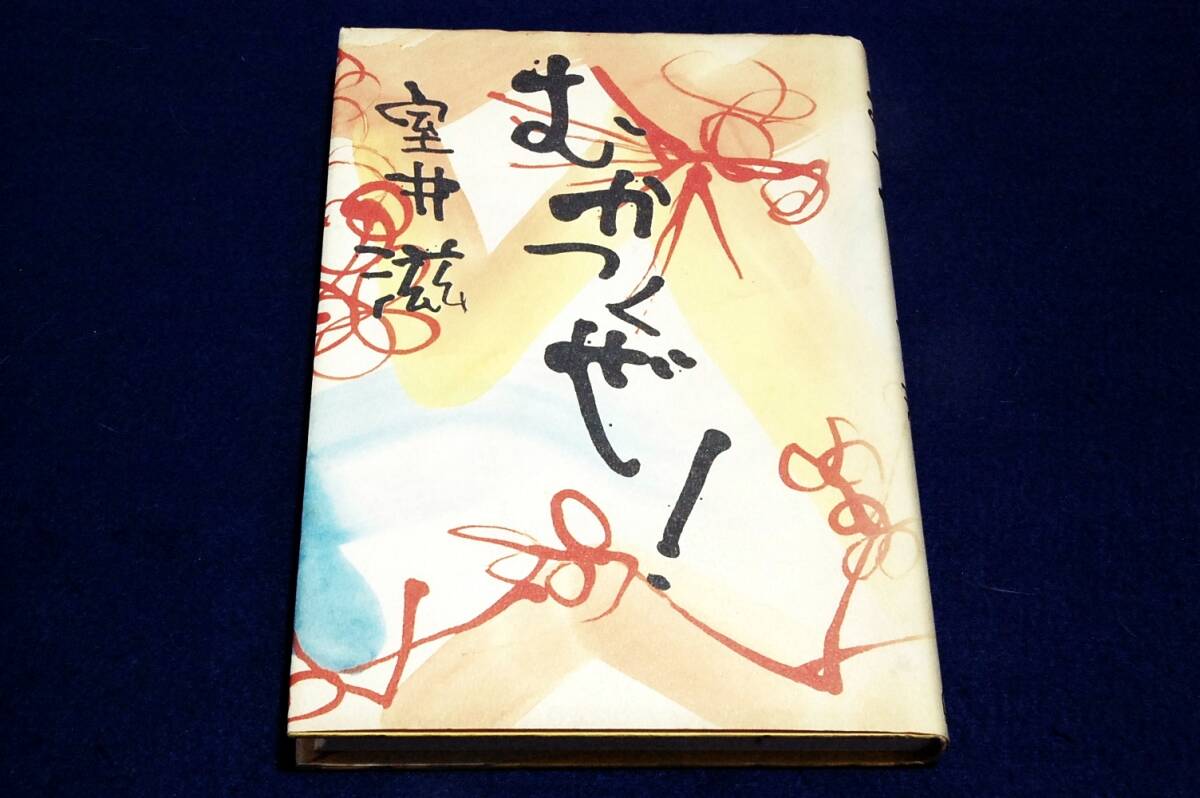 むかつくぜ！
室井滋